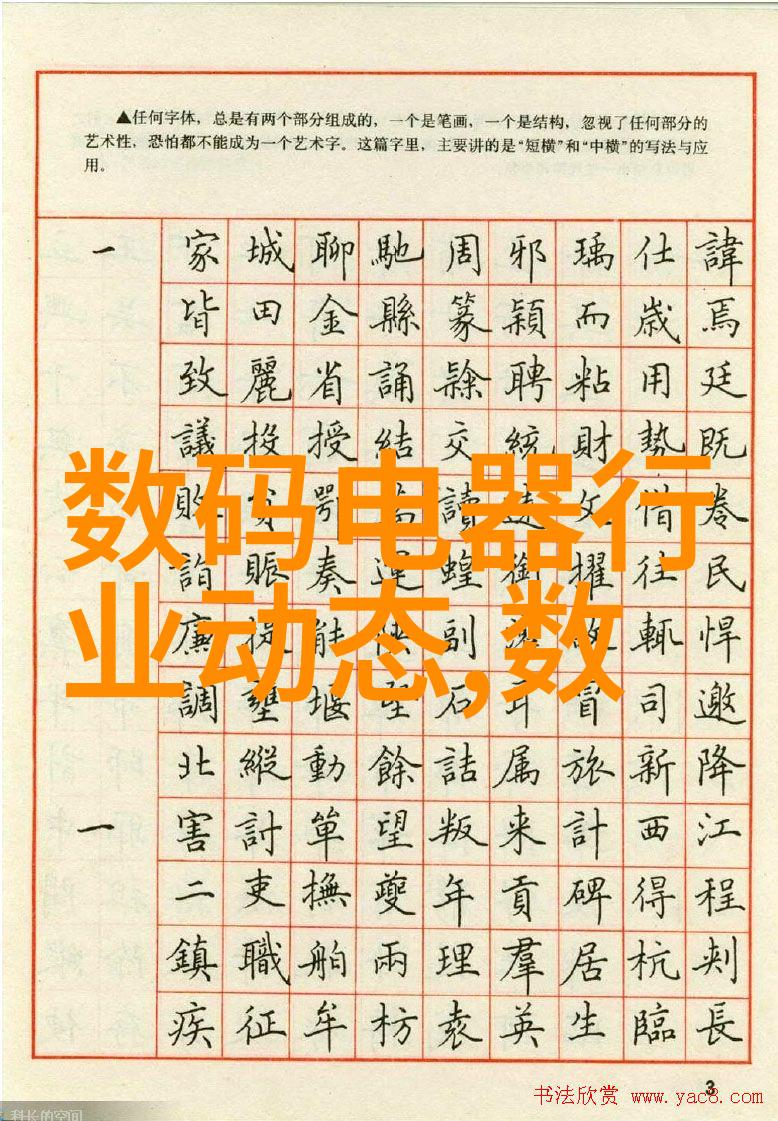 ▲任何字体，总是有两个部分组成的，一个是笔画，一个是结构，忽视了任何部分的
艺术性，恐怕都不能成为一个艺术字。这篇字里，主要讲的是“短横”和“中横”的写法与应
用。
一 家城聊馳周邪瑀仕諱
皆田金縣篆穎而歲焉
致麗省誦聘粘用廷
議投授結交統財勢既
鄂讀文借卷
詣賑奏運蝗擢往民
廉副故輒悍
調壅堰石冒司邀
北縱動餘詰属旅新降
一 害討單望叛来計西江
二吏撫夔年貢碑得程
鎮職舶兩理羣居杭刺
疾征牟枋袁英生臨長
数码电器行
业动态,数
3
书法欣赏 www.yac8.com
科长的空间